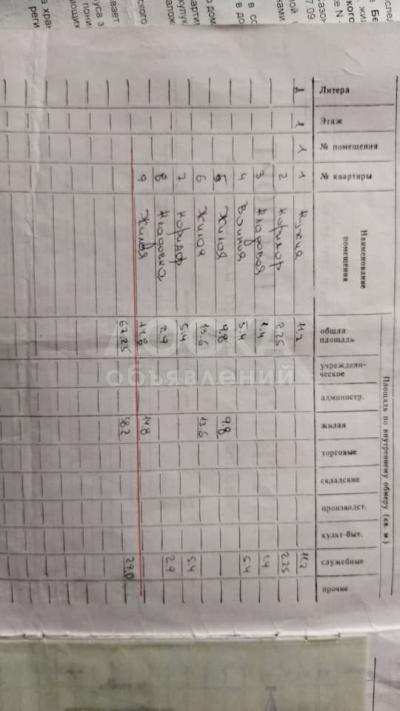 Площадь по внутреннему обмеру (кв. м)
Литера Этаж № помещения № квартиры Наименование помещения общая площадь учрежден-ческое администр. жилая торговые складские производст. культ-быт. служебные прочие
1 1 1 1 кухня 11,2 11,2
2 коридор 2,25 2,25
3 кладовая 1,4 1,4
4 5,4 5,4
5 жилая 9,8 9,8
6 жилая 13,6 13,6
7 коридор 5,4 5,4
8 кладовка 2,9 2,9
9 жилая 14,8 14,8
67,25 38,2 29,0
объявлений